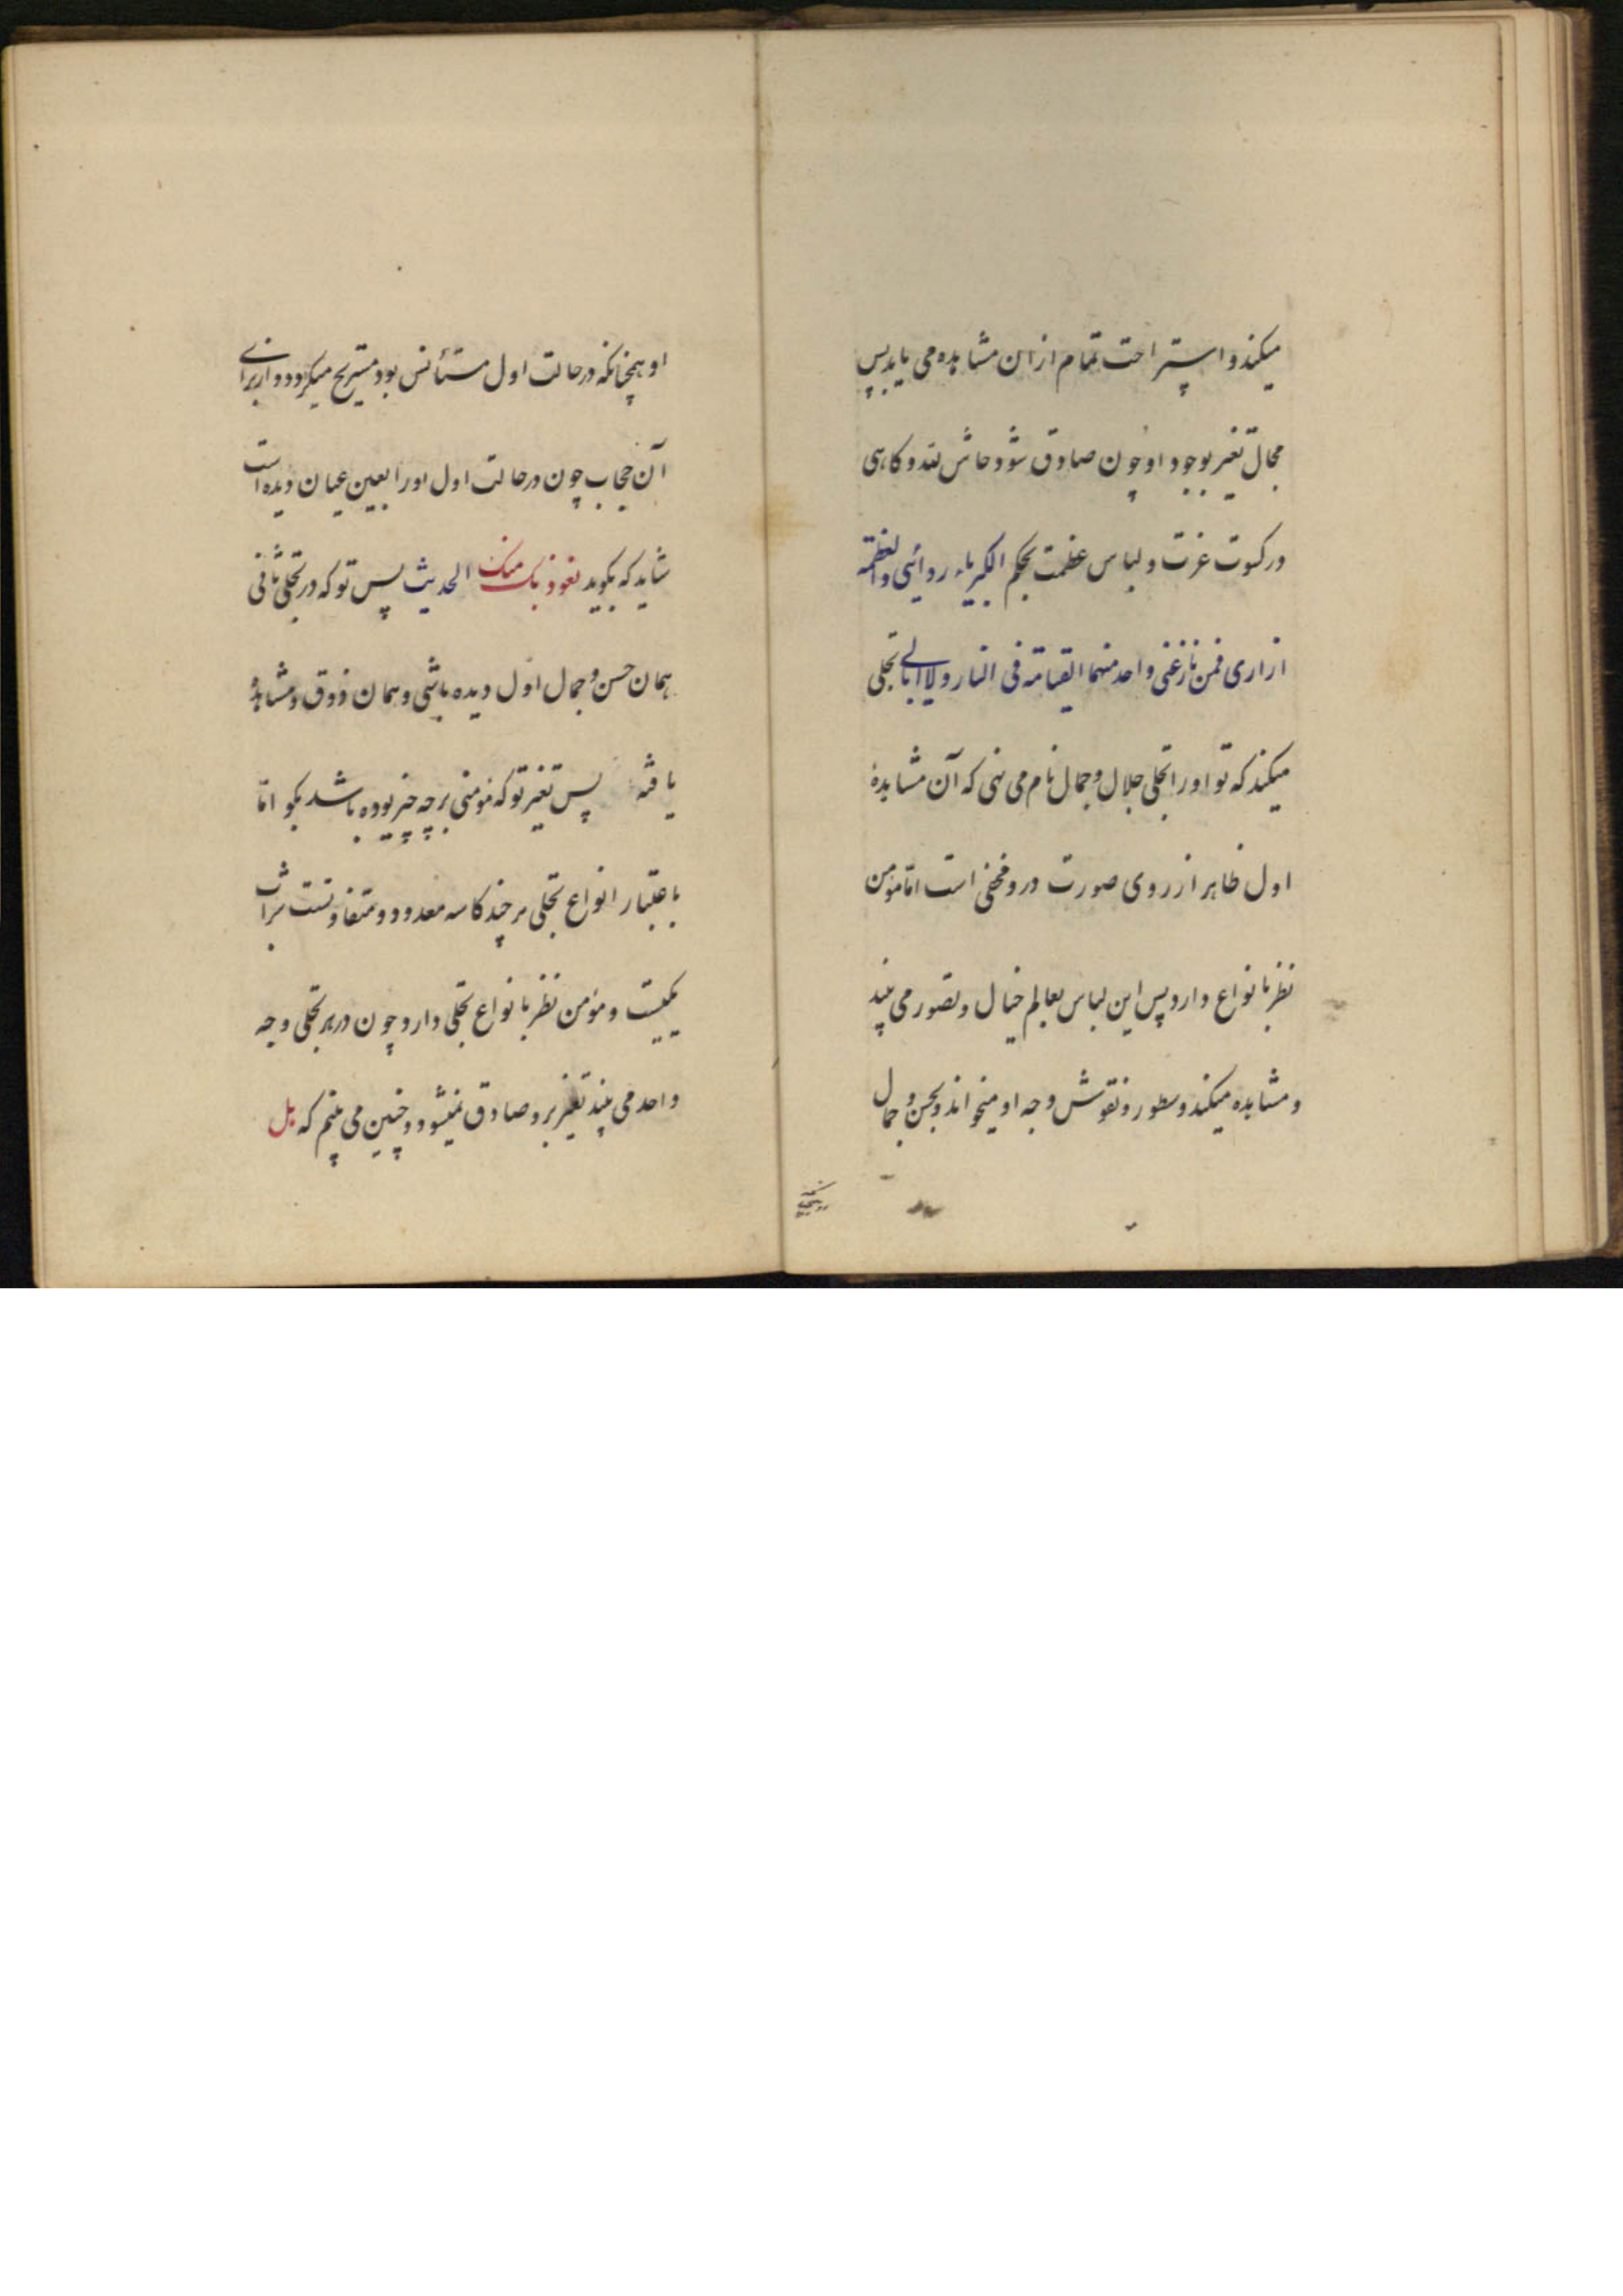 میکند و استراحت تمام از ان مشاهده می یابد پس
مجال تغیر بوجود او چون صادق شود حاش لله و کاهی
در کسوت عزت و لباس عظمت بحکم الکبریاء ردائی والعظمة
ازاری فمن نازعنی واحد منهما القیامة فی النار ولا ابالے تجلی
میکند که تو او را تجلی جلال و جمال نام می نهی که آن مشاهدهٔ
اول ظاهر از روی صورت درو مخفی است امّا مؤمن
نظر بانواع دارد پس این لباس بعالم خیال و تصور می بیند
و مشاهده میکند و سطور و نقوش وجه او میخواند و بحسن و جمال
او همچنانکه در حالت اول مستأنس بود مستریح میکردد و از برای
آن حجاب چون در حالت اول او را بعین عیان دیده است
شاید که بکوید نعوذ بک منک الحدیث پس تو که در تجلی ثانی
همان حسن و جمال اول دیده باشی و همان ذوق و مشاهدهٔ
یافته پس تغیر تو که مؤمنی بر چه چیز بوده باشد بکو امّا
باعتبار انواع تجلی هر چند کاسه معدود و متفاوتست شراب
یکیست و مؤمن نظر بانواع تجلی دارد چون در هر تجلی وجه
واحد می بیند تغیر برو صادق نمیشود و چنین می بینم که بل